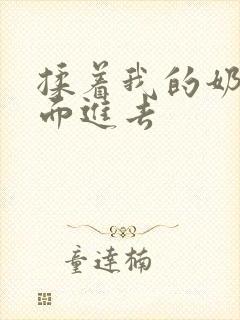 揉着我的奶
而进去
童达楠